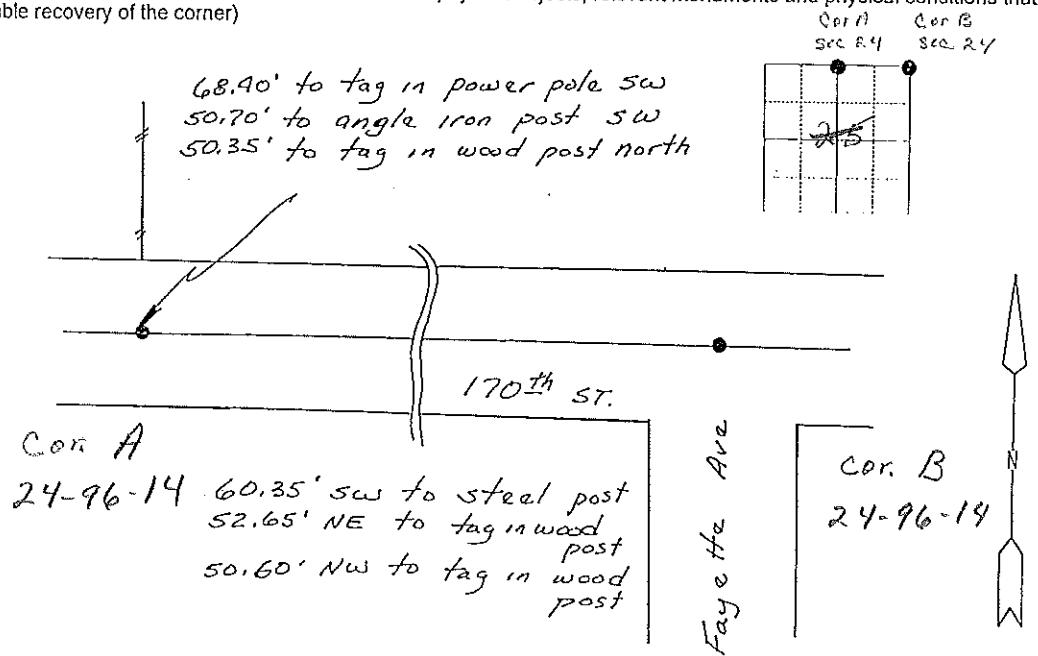 ble recovery of the corner)
Cor A
sec 24
Cor B
sec 24
68.90' to tag in power pole SW
50.70' to angle iron post SW
50.35' to tag in wood post north
25
170th ST.
Cor. A
24-96-14
60.35' SW to steel post
52.65' NE to tag in wood
post
50.60' NW to tag in wood
post
Fayette Ave
Cor. B
24-96-14
N